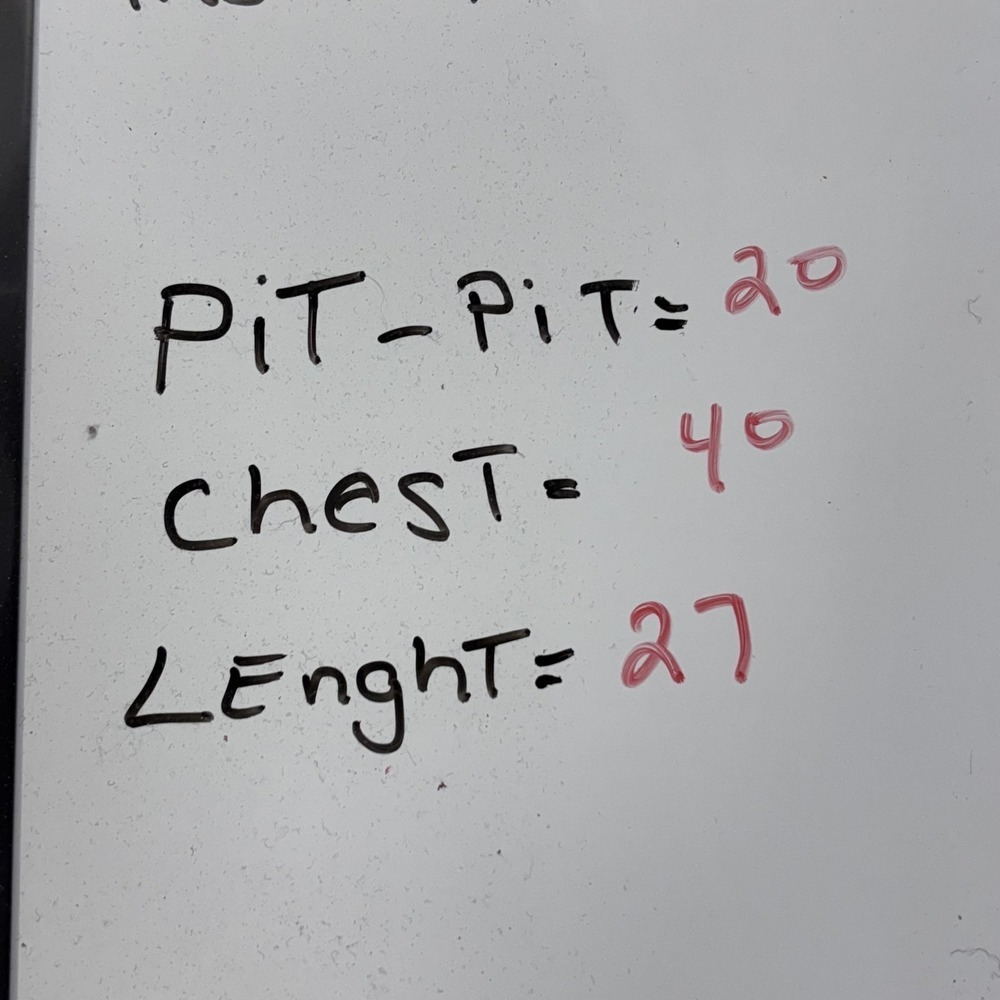 PiT - PiT = 20
chesT = 40
LEnghT = 27